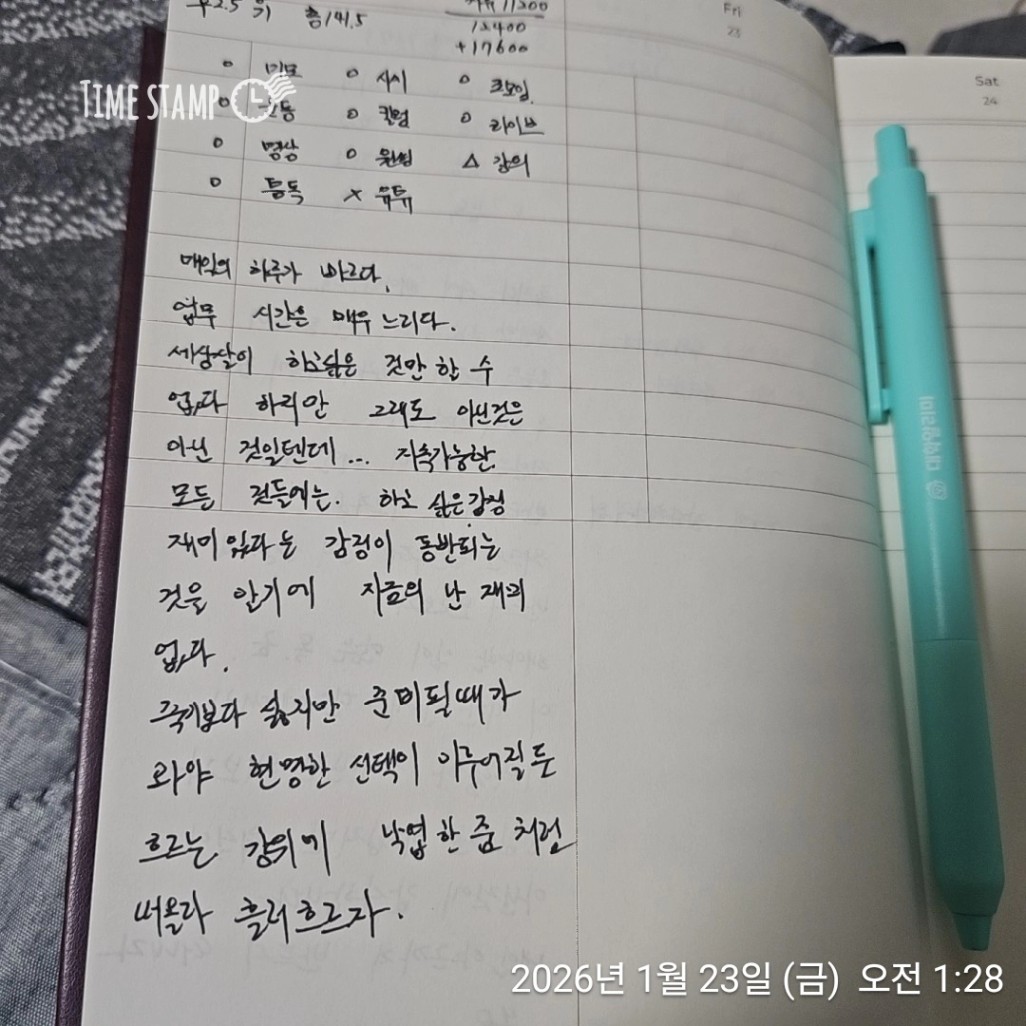 총 141.5
12400
+17600
Fri
23
Sat
24
TIME STAMP
o 미모 o 시시 o 코모임
o 운동 o 퀄럼 o 라이브
o 명상 o 원씽 △ 강의
o 통독 x 유튜
매일의 하루가 빠르다.
업무 시간은 매우 느리다.
세상살이 하고싶은 것만 할 수
없다 하지만 그래도 아닌것은
아닌 것일텐데... 지속가능한
모든 것들에는. 하고 싶은 감정
재미있다는 감정이 동반되는
것을 알기에 지금의 난 재미
없다.
죽기보다 싫지만 준비될때가
와야 현명한 선택이 이루어질 듯
흐르는 강위에 낙엽 한 줌 처럼
떠올라 흘러흐르자.
대화의미
2026년 1월 23일 (금) 오전 1:28